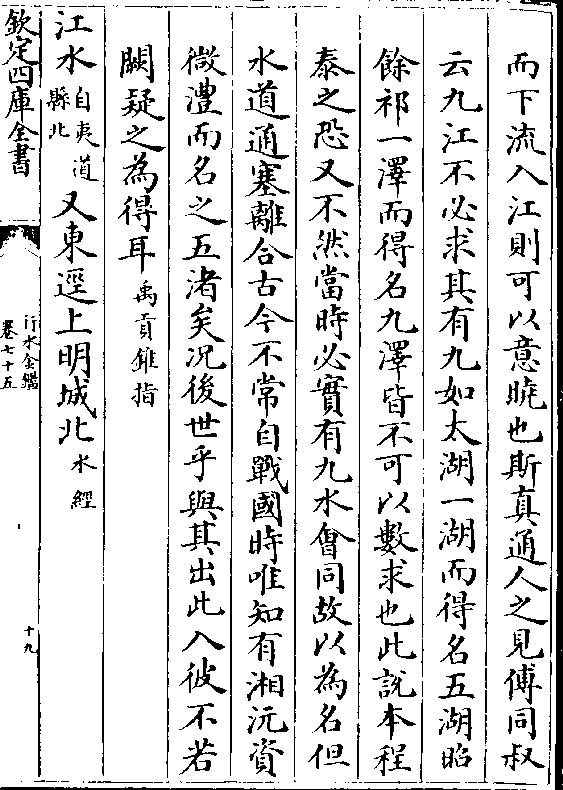 而下流入江則可以意曉也斯真通人之見傅同叔
云九江不必求其有九如太湖一湖而得名五湖昭
餘祁一澤而得名九澤皆不可以數求也此說本程
泰之恐又不然當時必實有九水會同故以為名但
水道通塞離合古今不常自戰國時唯知有湘沅資
微澧而名之五渚矣况後世乎與其出此入彼不若
闕疑之為得耳禹貢錐指
江水自夷道縣北又東逕上明城北水經
欽定四庫全書
行水金鑑
卷七十五
十九